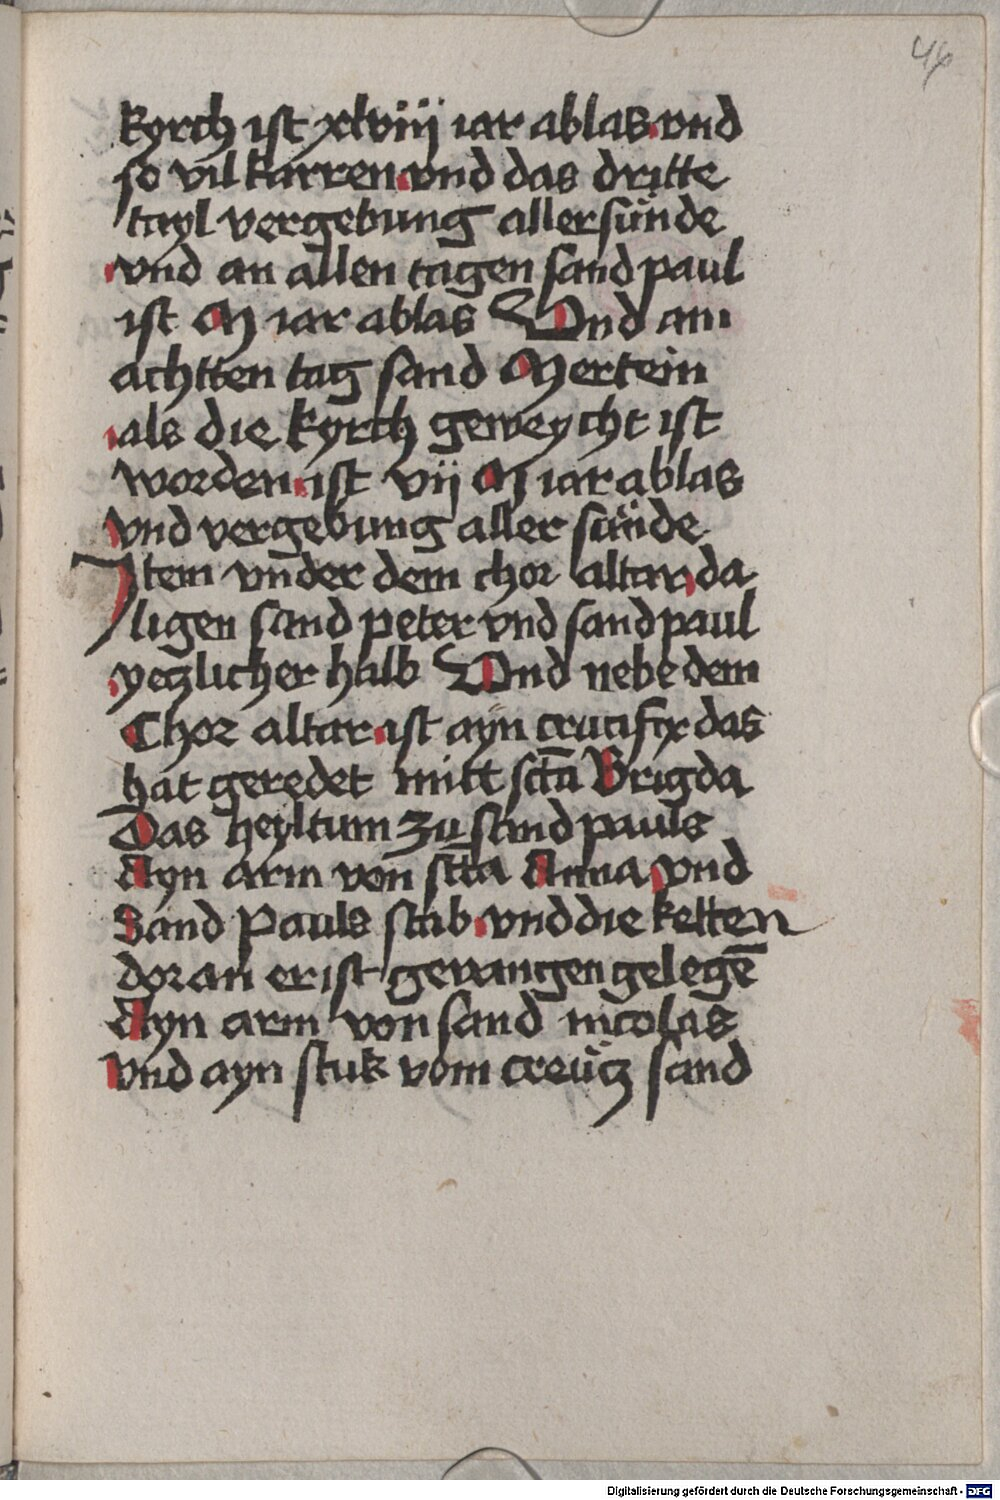 46
kyrch ist xlviij iar ablas und
so vil karren und das dritte
tayl vergebung aller sünde
vnd an allen tagen sand paul
ist M iar ablas Vnd am
achtten tag sand Mertein
als die kyrch geweycht ist
worden ist vij M iar ablas
vnd vergebung aller sünde
Item vnder dem chor altar da
ligen sand peter vnd sand paul
yeczlicher halb Vnd nebe dem
Chor altar ist ayn crucifix das
hat geredet mitt sctā Brigda
Das heyltum zu sand pauls
Ayn arm von sctā Anna vnd
Sand Pauls stab vnd die ketten
doran er ist gevangen gelegē
Ayn arm von sand nicolas
vnd ayn stuk vom creücz sand
Digitalisierung gefördert durch die Deutsche Forschungsgemeinschaft - DFG